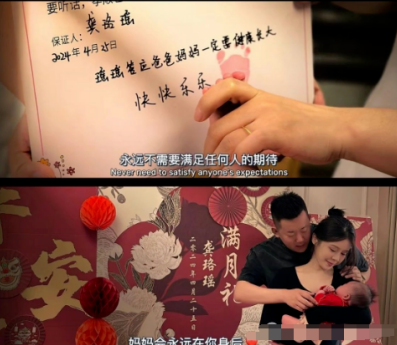 要听话，
龚珞瑶
保证人：
2024年4月25日
瑶瑶答应爸爸妈妈一定要健康长大
快快乐乐
永远不需要满足任何人的期待
Never need to satisfy anyone's expectations
安
满月礼
龚珞瑶
二零二四年四月二十五日
妈妈会永远在你身后